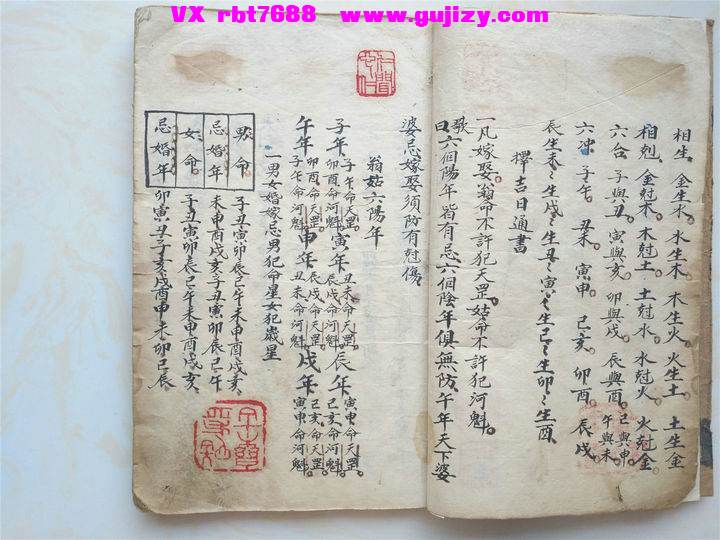 VX rbt7688 www.gujizy.com
相生 金生水 水生木 木生火 火生土 土生金
相尅 金尅木 木尅土 土尅水 水尅火 火尅金
六合 子與丑 寅與亥 卯與戌 辰與酉 巳與申 午與未
六冲 子午 丑未 寅申 巳亥 卯酉 辰戌
辰生未〻生戌〻生丑〻寅〻生巳〻生卯〻生酉
擇吉日通書
一凡嫁娶翁命不許犯天罡姑命不許犯河魁
歌曰六個陽年皆有忌六個陰年俱無防午年天下婆
婆忌嫁娶須防有尅傷
翁姑六陽年
子年 子午命天罡 卯酉命河魁 寅年 丑未命天罡 辰戌命河魁 辰年 寅申命天罡 巳亥命河魁
午年 卯酉命天罡 子午命河魁 申年 辰戌命天罡 丑未命河魁 戌年 巳亥命天罡 寅申命河魁
一男女婚嫁忌男犯命星女犯歲星
男命 子丑寅卯辰巳午未申酉戌亥
忌婚年 未申酉戌亥子丑寅卯辰巳午
女命 子丑寅卯辰巳午未申酉戌亥
忌婚年 卯寅丑子亥戌酉申未 巳辰